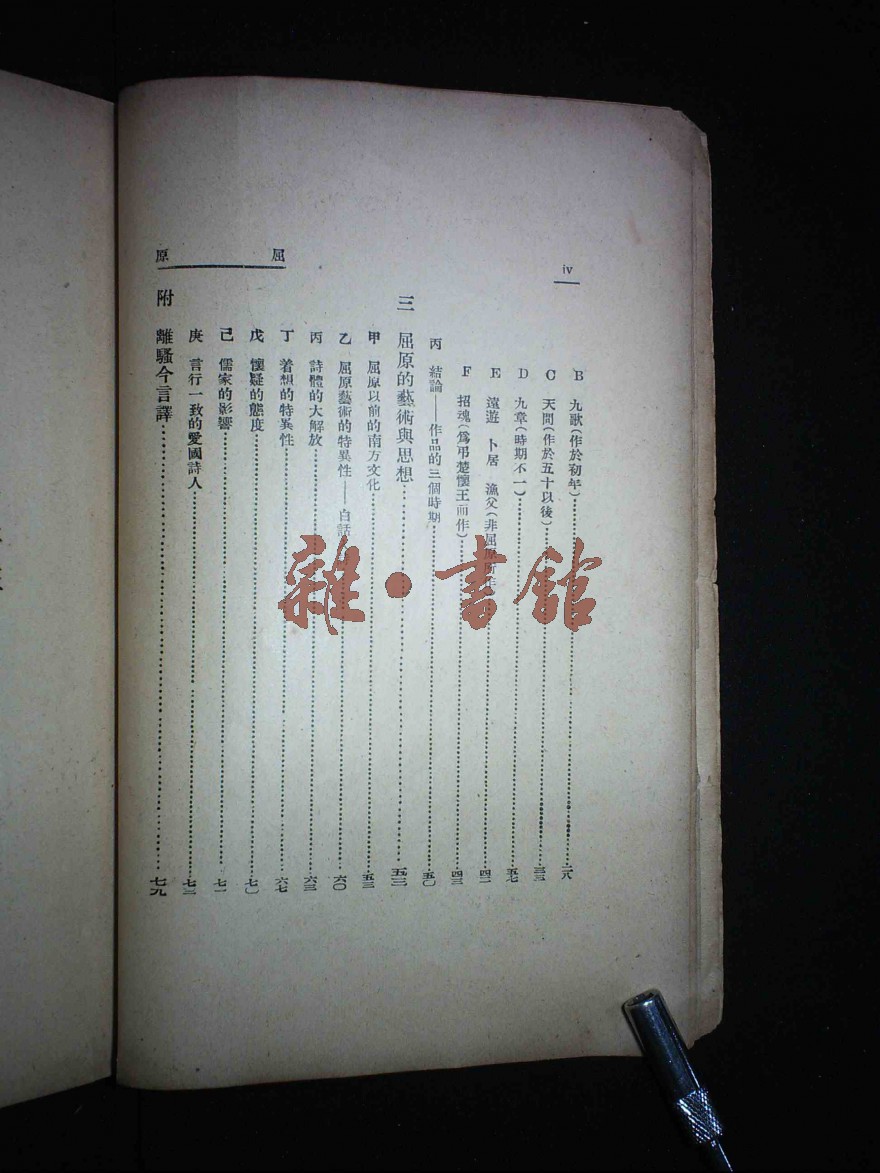 iv
B 九歌(作於初年)……二八
C 天問(作於五十以後)……三三
D 九章(時期不一)……
E 遠遊 卜居 漁父(非屈原所作)……四二
F 招魂(爲弔楚懷王而作)……四三
丙 結論——作品的三個時期……五〇
三 屈原的藝術與思想……五三
甲 屈原以前的南方文化……五三
乙 屈原藝術的特異性——白話……六〇
丙 詩體的大解放……六三
丁 着想的特異性……六七
戊 懷疑的態度……七〇
己 儒家的影響……七一
庚 言行一致的愛國詩人……七三
附 離騷今言譯……七九
屈原
雜·書館